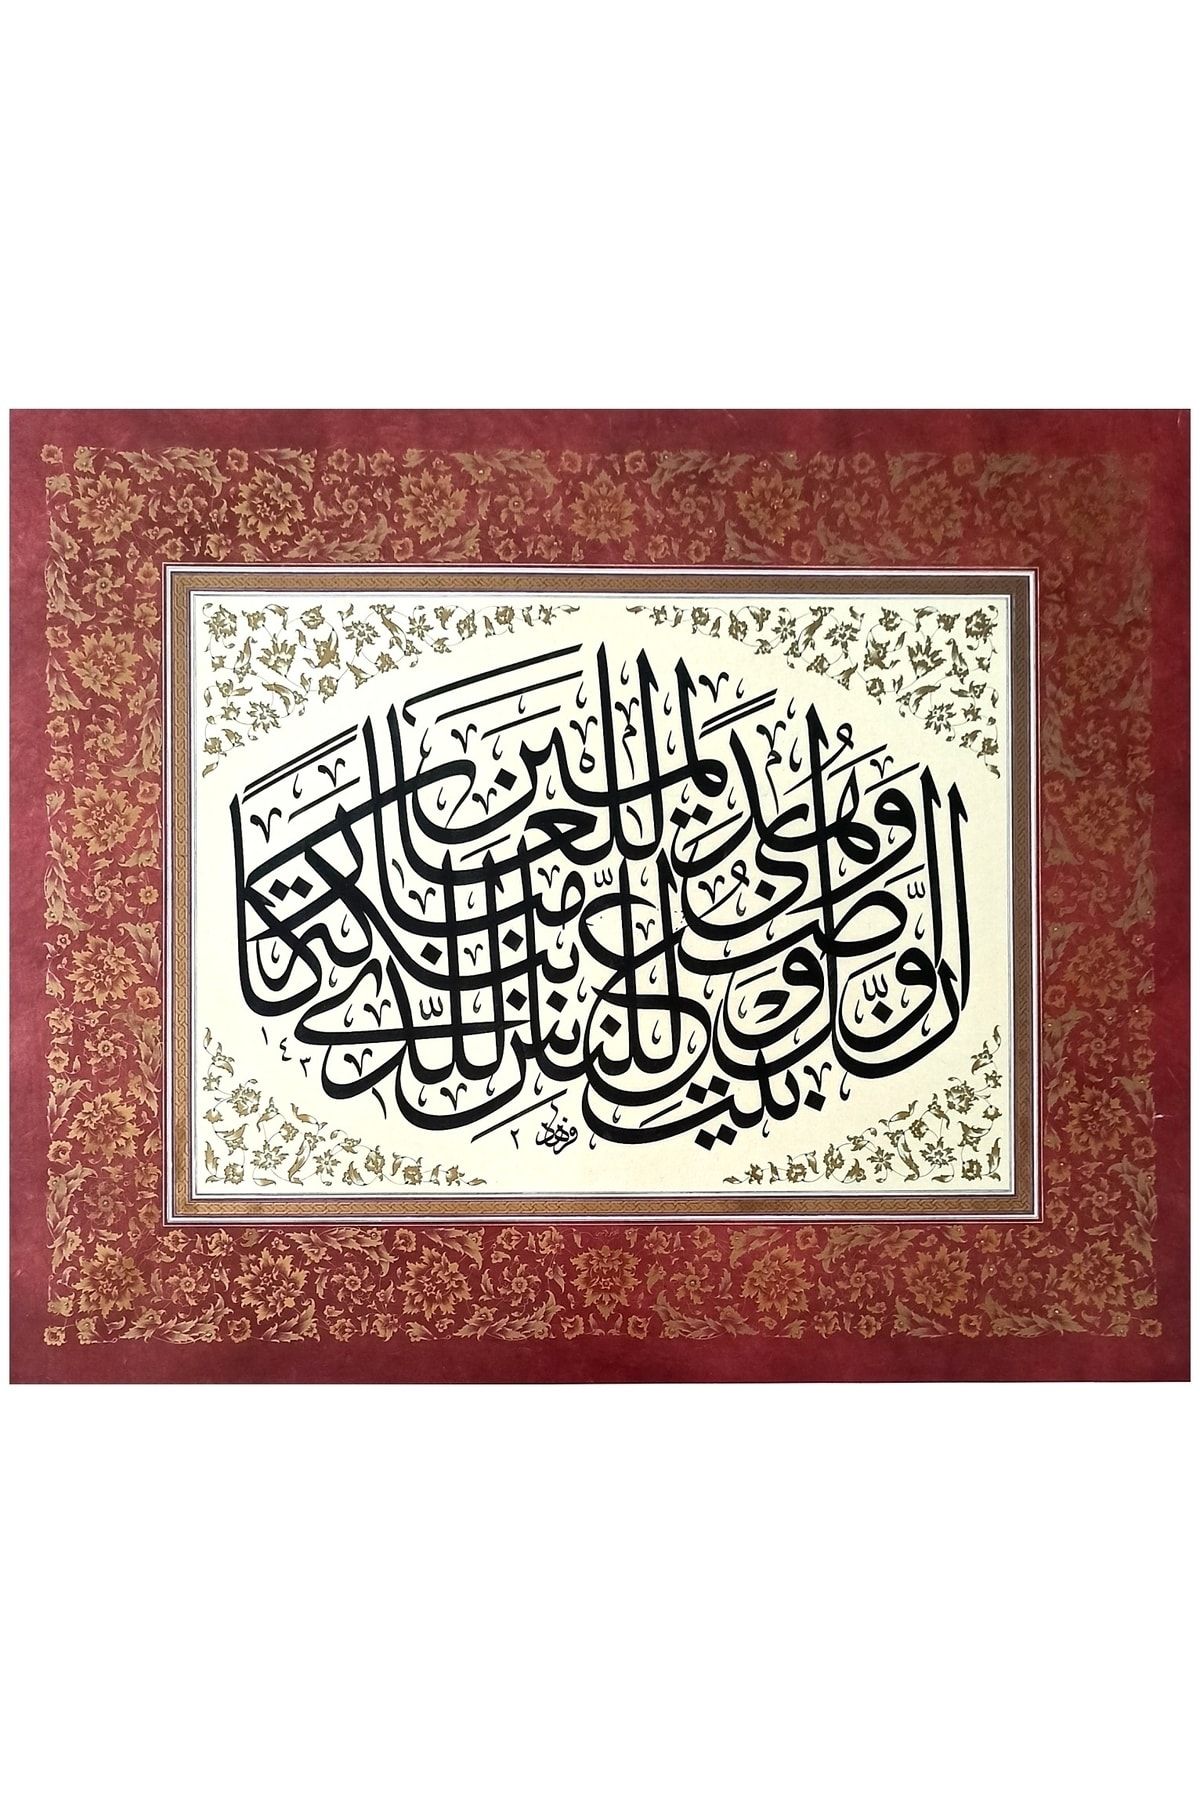 إن أول بيت وضع للناس للذي ببكة مباركا وهدى للعالمين
١٤٣٢